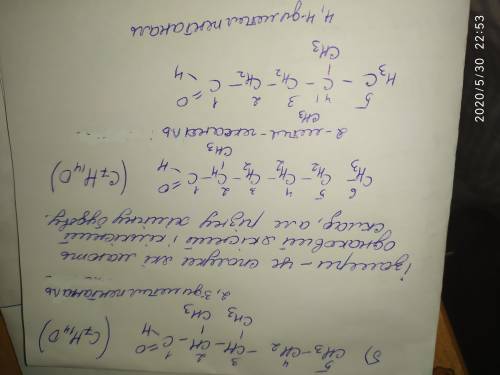 5) 5 4 3 2 1
CH3-CH2-CH-CH-C=O (C7H14O)
H
CH3 CH3
2,3диметилпентаналь
Ізомери – це сполуки які мають
однаковий якісний і кількісний
склад, але різну хімічну будову.
6 5 4 3 2 1
CH3-CH2-CH2-CH2-CH-C=O (C7H14O)
H
CH3
2-метил-гексаналь
CH3
5 4 3 2 1
H3C-C-CH2-CH2-C=O
H
CH3
4,4-диметилпентаналь
2020/5/30 22:53